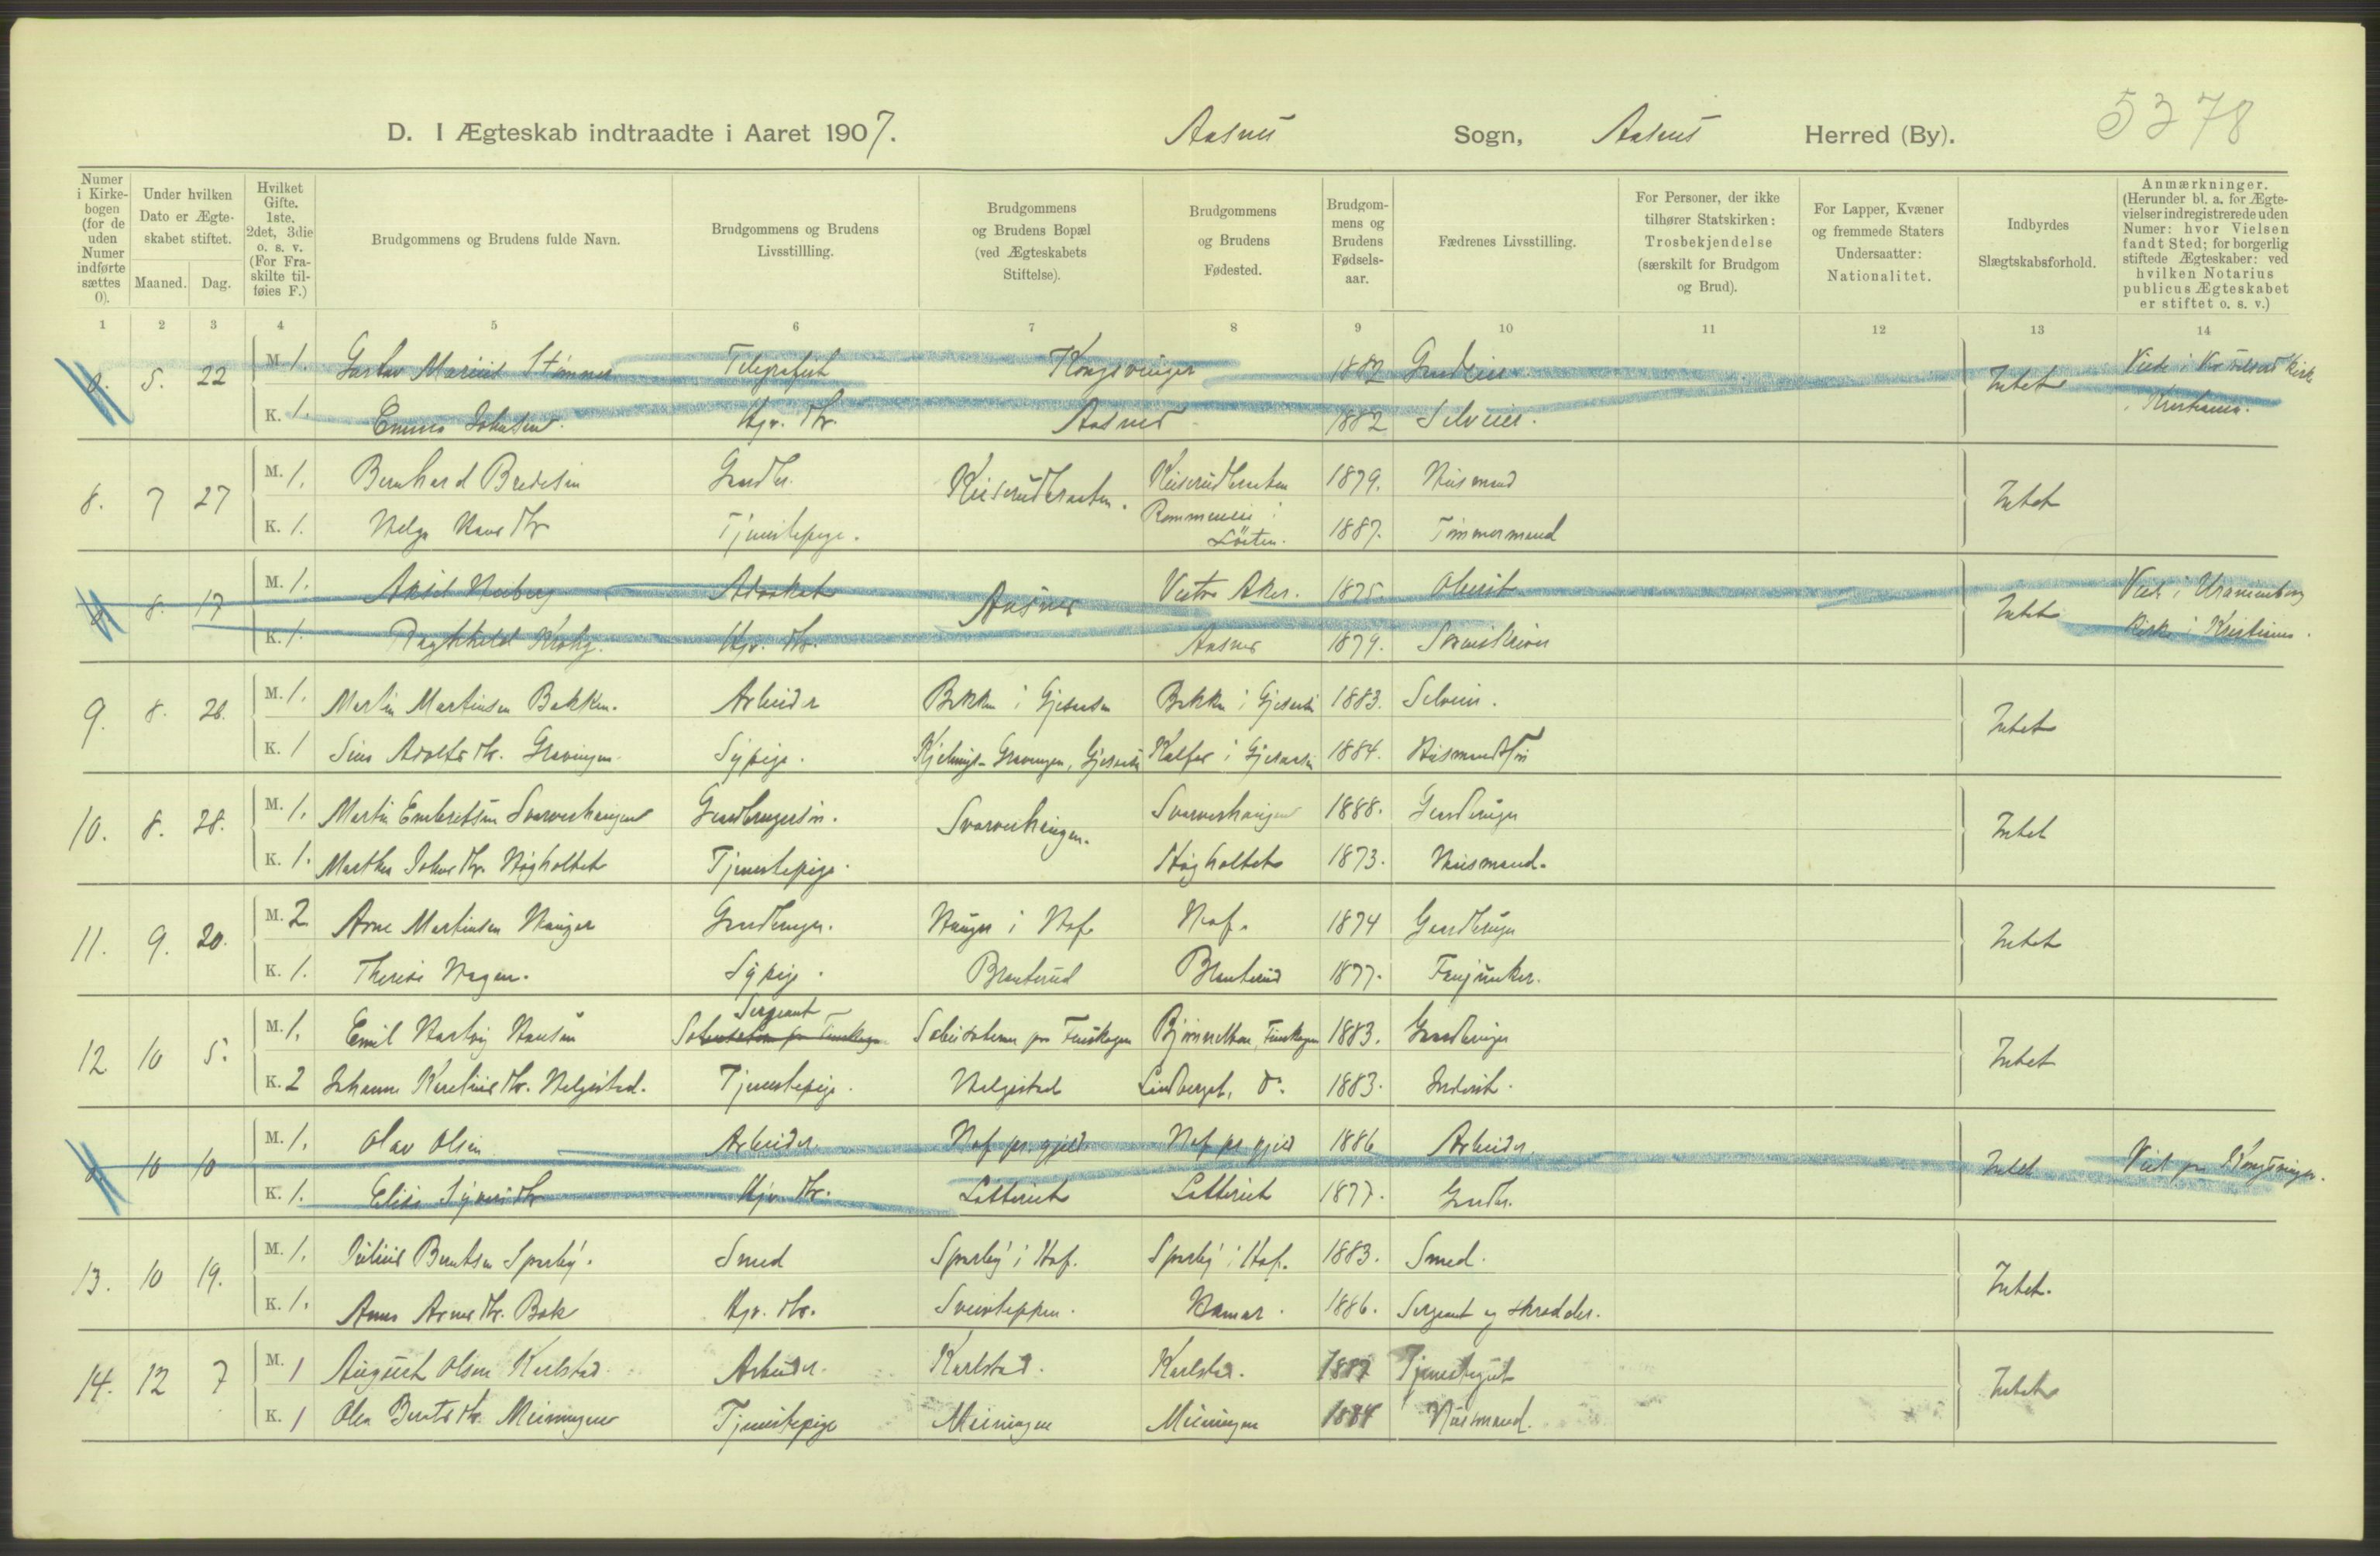 D. I Ægteskab indtraadte i Aaret 1907. Aasnes Sogn, Aasnes Herred (By). 5378
Numer i Kirkebogen (for de uden Numer indførte sættes 0).
Under hvilken Dato er Ægteskabet stiftet.
Maaned. Dag.
Hvilket Gifte. 1ste, 2det, 3die o. s. v. (For Fraskilte tilføies F.)
Brudgommens og Brudens fulde Navn.
Brudgommens og Brudens Livsstillling.
Brudgommens og Brudens Bopæl (ved Ægteskabets Stiftelse).
Brudgommens og Brudens Fødested.
Brudgommens og Brudens Fødselsaar.
Fædrenes Livsstilling.
For Personer, der ikke tilhører Statskirken: Trosbekjendelse (særskilt for Brudgom og Brud).
For Lapper, Kvæner og fremmede Staters Undersaatter: Nationalitet.
Indbyrdes Slægtskabsforhold.
Anmærkninger. (Herunder bl. a. for Ægtevielser indregistrerede uden Numer: hvor Vielsen fandt Sted; for borgerlig stiftede Ægteskaber: ved hvilken Notarius publicus Ægteskabet er stiftet o. s. v.)
1 2 3 4 5 6 7 8 9 10 11 12 13 14
0. 5. 22 M. 1. Gustav Marius Telegrafist Kongsvinger 1882 Intet Viet i Kirke
K. 1. Emma Johnsen. Hjv. Dtr. Aasnes 1882 Selveier. i Kristiania.
8. 7 27 M. 1. Bernhard Bredesen Gaardbr. Keiserudbraaten. Keiserudbraaten 1879. Husmand Intet
K. 1. Helga Hansdtr Tjenestepige. i Løiten. 1887. Tømmermand
0 8. 17 M. 1. Aksel Advokat Aasnes Vestre Aker. 1875. Oberst Intet Viet i Uranienborg
K. 1. Ragnhild Krohg. Hjv. Dtr. Aasnes 1879. Sorenskriver Kirke i Kristiania.
9. 8. 28. M. 1. Martin Martinsen Bakken. Arbeider Bakken i Gjesaasen Bakken i Gjesaasen 1883. Selveier. Intet
K. 1 Adolfsdtr. Gravingen. Sypige. Gravingen, Gjesaasen i Gjesaasen 1884. Husmandssøn
10. 8. 28. M. 1. Martin Embretsen Svarverhaugen Gaardbrugersøn. Svarverhaugen. Svarverhaugen 1888. Gaardbruger Intet
K. 1. Martha Johnsdtr. Høgholtet Tjenestepige. Høgholtet 1873. Husmand.
11. 9. 20. M. 2 Arne Martinsen Hauger Gaardbruger. Hauger i Hof. Hof. 1874 Gaardbruger Intet
K. 1. Therese Hagen. Sypige. Branterud Branterud 1877. Fanejunker.
12 10 5. M. 1. Emil Hartvig Hansen Sergeant paa Finskogen Finskogen 1883. Gaardbruger Intet
K. 2 Johanne Helgestad. Tjenestepige. Helgestad Lindberget, do. 1883. Inderst.
0 10 10 M. 1. Olav Olsen Arbeider. Hof pr.gjeld Hof pr.gjeld 1886 Arbeider. Intet Viet paa Kongsvinger.
K. 1. Elise Hjv. Dtr. 1877. Gaardbr.
13. 10 19. M. 1. Julius Berntsen Sparby. Smed Sparby i Hof. Sparby i Hof. 1883. Smed. Intet.
K. 1. Anna Arnesdtr. Bak Hjv. Dtr. Sveinteppen. Hamar. 1886. Sergeant og skrædder.
14. 12 7 M. 1 August Olsen Karlstad. Arbeider. Karlstad. Karlstad. Tjenestegut Intet
K. 1 Berntsdtr. Meiningen Tjenestepige Meiningen Meiningen 1884 Husmand.